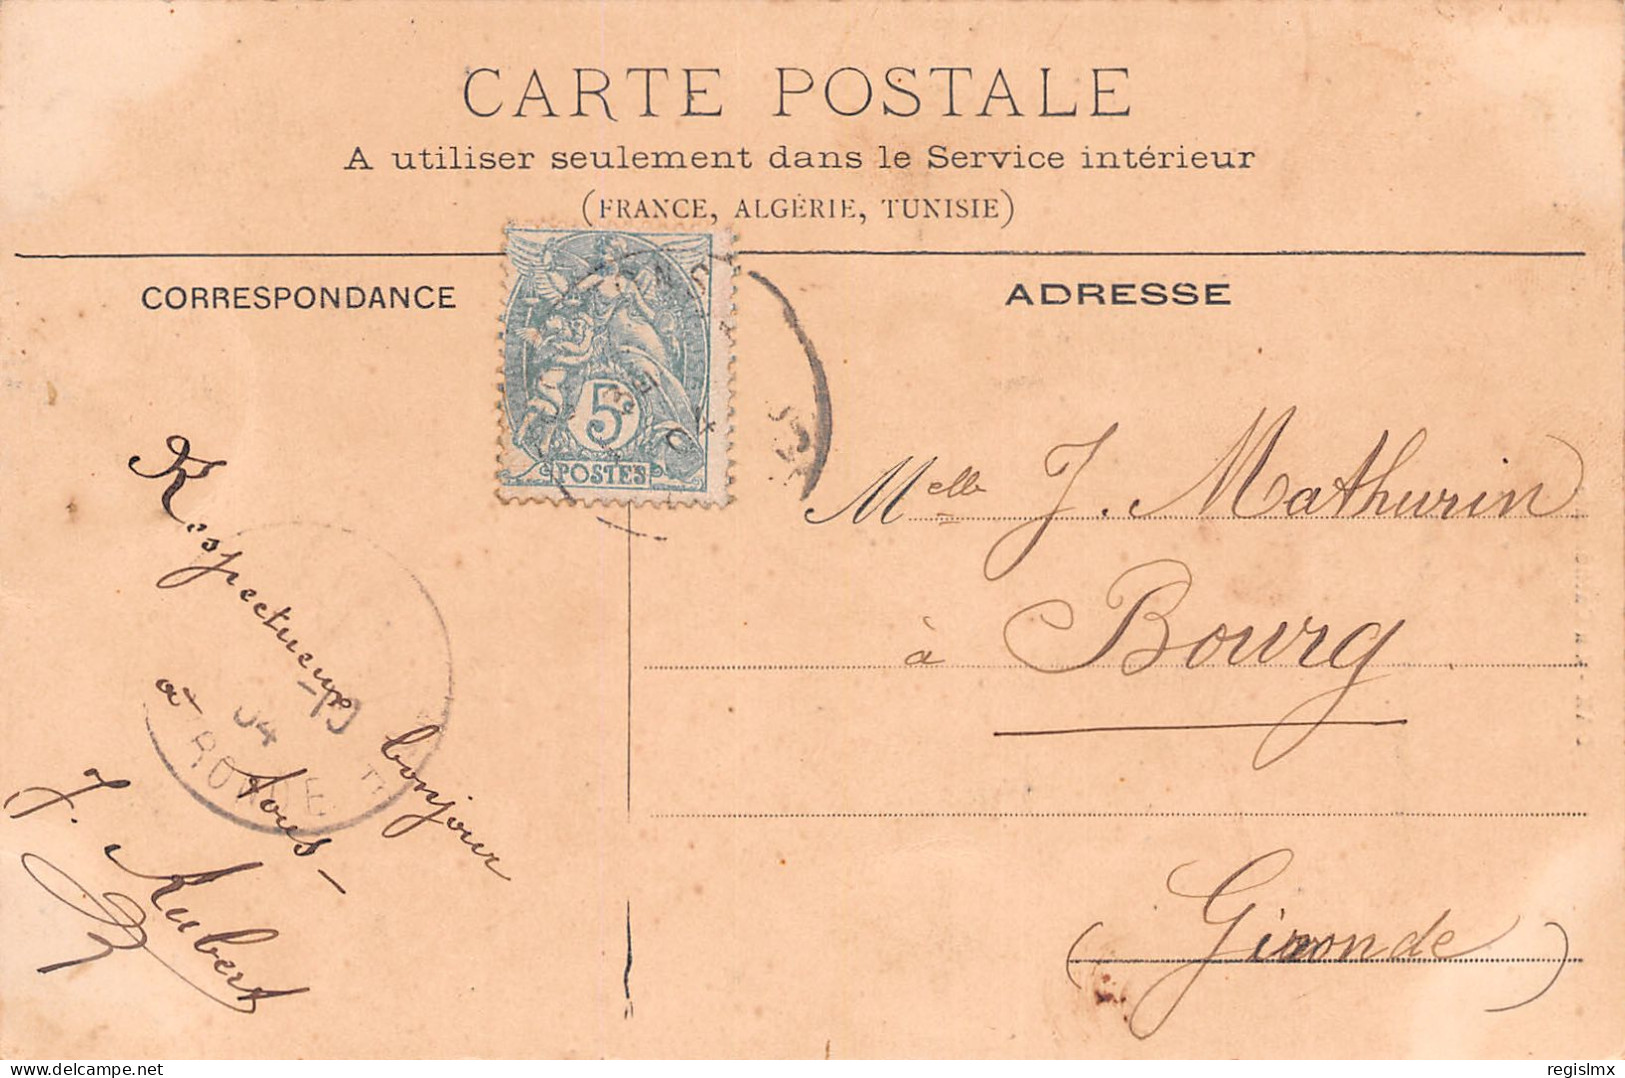 CARTE POSTALE
A utiliser seulement dans le Service intérieur
(FRANCE, ALGÉRIE, TUNISIE)
CORRESPONDANCE
ADRESSE
5c
POSTES
Respectueux bonjour
à tous –
J. Aubert
04
Melle J. Mathurin
à Bourg
(Gironde)
delcampe.net
regislmx